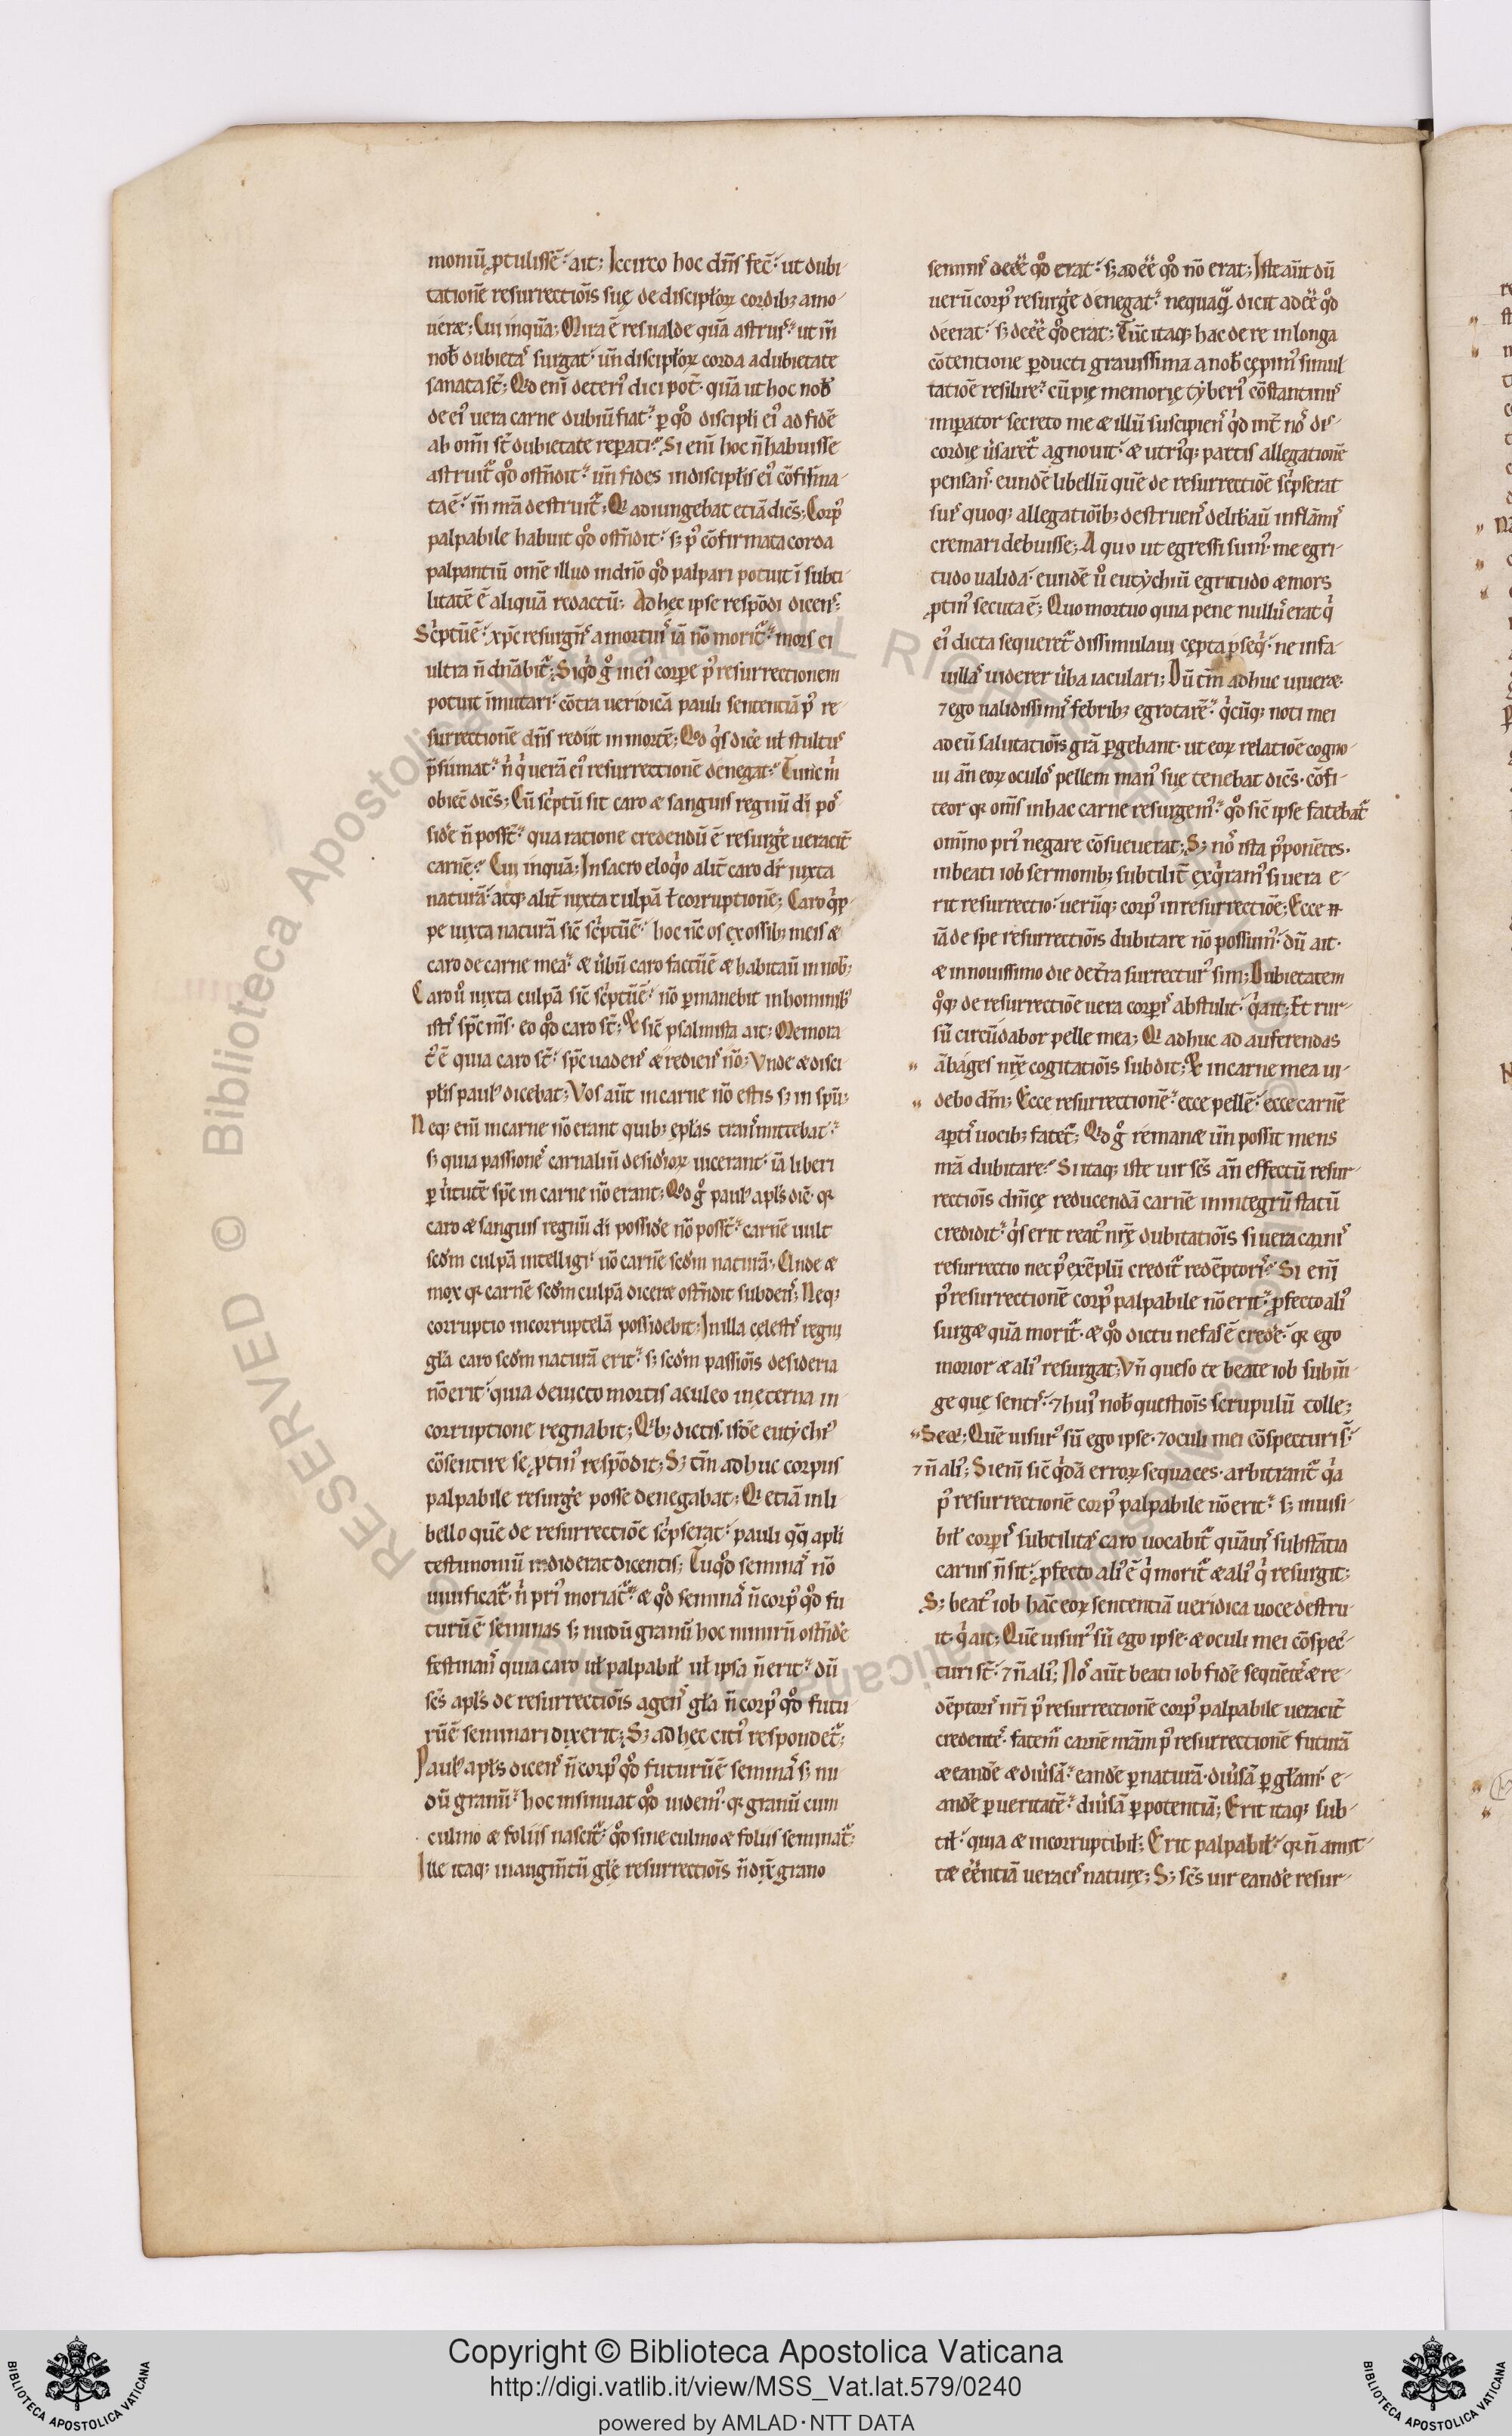 moniũ ꝓtulissẽ. ait; Iccirco hoc dñs fec̃. ut dubi-
tationẽ resurrectiõis suę de discipłoꝝ cordibꝫ amo-
ueret; Cui inquã; Mira ẽ res ualde quã astruis. ut in̄
nob̃ dubietas surgat. uñ discipłoꝝ corda a dubietate
sanata st̃; Qđ eni̅ deteriꝰ dici pot̃. quã ut hoc nob̃
de eiꝰ uera carne dubiũ fiat. ꝑ qđ discipłi eiꝰ ad fidẽ
ab omi̅ st̃ dubietate reꝑati; Si eni̅ hoc ñ habuisse
astruit̃ qđ ostñdit. uñ fides in discipłis eiꝰ cõfirma-
ta ẽ. in̄ nr̃a destruit̃; Qui adiungebat etiã dic̃s; Corpꝰ
palpabile habuit qđ ostñdit. sꝫ pꝰ cõfirmata corda
palpantiũ om̃e illud in dño qđ palpari potuit i̅ subti-
litatẽ ẽ aliquã redactũ; Ad hęc ipse respõdi dicens;
Sc̃ptũ ẽ. xp̃c resurgñs a mortuis iã nõ morit̃. mors ei
ultra ñ dñabit̃; Siqđ g̊ in eiꝰ corꝑe pꝰ resurrectionem
potuit i̅mutari. cõtra ueridicã pauli sententiã pꝰ re-
surrectionẽ dñs rediit in mortẽ; Qđ q̓s dicẽ uł stultus
p̃sumat. ñ q̓ uerã eiꝰ resurrectionẽ denegat; Tunc m̓
obiec̃ dic̃s; Cũ sc̃ptũ sit caro & sanguis regnũ di̅ pos-
sidẽ ñ posst̃. qua ratione credendũ ẽ resurgẽ ueracit̃
carnẽ; Cui inquã; In sacro eloq̓o alit̃ caro dr̃ iuxta
naturã. atqꝫ alit̃ iuxta culpã ł corruptionẽ; Caro q̓p-
pe iuxta naturã sic̃ sc̃ptũ ẽ. hoc nc̃ os ex ossibꝫ meis &
caro de carne mea. & ůbũ caro factũ ẽ & habitauı̅ in nob̃;
Caro ů iuxta culpã sic̃ sc̃ptũ ẽ. nõ ꝑmanebit in hominibꝫ
istis sp̃c m̃s. eo qđ caro st̃; Et sic̃ psalmista ait; Memora
tꝰ ẽ quia caro st̃. sp̃c uadens & rediens nõ; Vnde & disci
płis paulꝰ dicebat; Vos aut̃ in carne nõ estis sꝫ in spũ;
Neqꝫ eni̅ in carne nõ erant quibꝫ epłas transmittebat.
sꝫ quia passiones carnaliũ desid̓ioꝝ uicerant. iã liberi
ꝑ ůtutẽ sp̃c in carne nõ erant; Qđ g̊ paulꝰ apłs dic̃. qꝛ
caro & sanguis regnũ di̅ possidẽ nõ posst̃. carnẽ uult
scđm culpã intelligi. nõ carnẽ scđm naturã; Vnde &
mox qꝛ carnẽ scđm culpã diceret ostñdit subdens; Neqꝫ
corruptio incorruptelã possidebit; In illa cęlestis regni
gła caro scđm naturã erit. sꝫ scđm passiõis desideria
nõ erit. quia deuicto mortis aculeo in ęterna in-
corruptione regnabit; Qibꝫ dictis. isdẽ eutychiꝰ
cõsentire se ꝓtinꝰ respõdit; Sꝫ tm̃ adhuc corpus
palpabile resurgẽ posse denegabat; Qui etiã in li-
bello quẽ de resurrectiõe sc̃pserat. pauli qq̃ apłi
testimoniũ indiderat dicentis; Tu qđ seminas nõ
uiuificat̃. ñ priꝰ moriat̃. & qđ seminas ñ corpꝰ qđ fu
turũ ẽ seminas sꝫ nudũ granũ hoc nimirũ ostñdẽ
festinans quia caro uł palpabił uł ipsa ñ erit. dũ
sc̃s apłs de resurrectiõis agens gła ñ corpꝰ qđ futu
rũ ẽ seminari dixerit; Sꝫ ad hęc citiꝰ respondet̃;
Paulꝰ apłs dicens ñ corpꝰ qđ futurũ ẽ seminas sꝫ nu
dũ granũ. hoc insinuat qđ uidemꝰ. qꝛ granũ cum
culmo & foliis nascit̃. qđ sine culmo & foliis seminat̃;
Ille itaqꝫ in augm̃tũ głę resurrectiõis ñ dix̃ grano
seminis deeẽ qđ erat. sꝫ adeẽ qđ nõ erat; Iste aut̃ dũ
uerũ corpꝰ resurgẽ denegat. nequaquã dicit adeẽ qđ
deerat. sꝫ deeẽ qđ erat; Tũc itaqꝫ hac de re in longa
cõtentione ꝑducti grauissima a nob̃ cępimꝰ simul
tatiõe resilire. cũ pię memorię tyberiꝰ cõstantinus
imꝑator secreto me & illũ suscipiens q̓d int̃ nos dis-
cordię ůsaret̃ agnouit. & utriꝰqꝫ partis allegationẽ
pensans. eundẽ libellũ quẽ de resurrectiõe sc̃pserat
suis quoqꝫ allegatiõibꝫ destruens delib̃auı̅ in flãmis
cremari debuisse; A quo ut egressi sumꝰ. me egri-
tudo ualida. eundẽ ů eutychiũ egritudo & mors
ꝓtinꝰ secuta ẽ; Quo mortuo quia pene nullus erat q̓
eiꝰ dicta sequeret̃ dissimulaui cępta ꝑseq̓. ne in fa-
uillas uiderer ůba iaculari; Dũ tm̃ adhuc uiueret.
⁊ ego ualidissimis febribꝫ egrotarẽ. q̓cũqꝫ noti mei
ad eũ salutatiõis grã ꝑgebant. ut eoꝝ relatiõe cogno-
ui añ eoꝝ oculos pellem manꝰ suę tenebat dic̃s. cõfi-
teor qꝛ oms̃ in hac carne resurgemꝰ. qđ sic̃ ipse fatebat̃
omi̅no priꝰ negare cõsueuerat; Sꝫ nos ista p̓ponẽtes.
in beati iob sermonibꝫ subtilit̃ exq̓ramꝰ si uera e-
rit resurrectio. uerũqꝫ corpꝰ in resurrectiõe; Ecce ñ
iã de spe resurrectiõis dubitare nõ possumꝰ. dũ ait.
& in nouissimo die de t̃ra surrecturꝰ sim; Dubietatem
q̊qꝫ de resurrectiõe uera corꝑis abstulit. q̓ ait; Et rur-
sũ circũdabor pelle mea; Qui adhuc ad auferendas
" ãbages nr̃ę cogitatiõis subdit; Et in carne mea ui-
" debo dm̃; Ecce resurrectionẽ. ecce pellẽ. ecce carnẽ
aꝑtis uocibꝫ fatet̃; Qđ g̊ remanet uñ possit mens
nr̃a dubitare; Si itaqꝫ iste uir sc̃s añ effectũ resur-
rectiõis dm̃cę reducendã carnẽ in integrũ statũ
credidit. q̓s erit reatꝰ nr̃ę dubitatiõis si uera carnis
resurrectio nec pꝰ exẽplũ credit̃ redẽptoris; Si eni̅
pꝰ resurrectionẽ corpꝰ palpabile nõ erit. ꝓfecto aliꝰ
surget quã morit̃. & qđ dictu nefas ẽ credẽ. qꝛ ego
morior & aliꝰ resurgat; Vñ queso te beate iob subiu̅-
ge quę sentis. ⁊ huiꝰ nob̃ questiõis scrupulũ tolle;
" Seqt̃; Quẽ uisurꝰ sũ ego ipse. ⁊ oculi mei cõspecturi st̃.
⁊ ñ aliꝰ; Si eni̅ sic̃ q̓dã erroꝝ sequaces. arbitrant̃ q̓a
pꝰ resurrectionẽ corpꝰ palpabile nõ erit. sꝫ inuisi-
bił corꝑis subtilitas caro uocabit̃ quãuis substãtia
carnis ñ sit. ꝓfecto aliꝰ ẽ q̓ morit̃ & aliꝰ q̓ resurgit;
Sꝫ beatꝰ iob hãc eoꝝ sententiã ueridica uoce destru-
it. q̓ ait; Quẽ uisurꝰ sũ ego ipse. & oculi mei cõspec-
turi st̃. ⁊ ñ aliꝰ; Nos aut̃ beati iob fidẽ sequẽtes & re-
dẽptoris nr̃i pꝰ resurrectionẽ corpꝰ palpabile ueracit̃
credentes. fatemꝰ carnẽ nr̃am pꝰ resurrectionẽ futurã
& eandẽ & diůsã. eandẽ ꝑ naturã. diůsã ꝑ głam. e-
andẽ ꝑ ueritatẽ. diůsã ꝑ potentiã; Erit itaqꝫ sub-
tił. quia & incorruptibił; Erit palpabił. qꝛ ñ amit-
tet eẽntiã ueracis naturę; Sꝫ sc̃s uir eandẽ resur-
Copyright © Biblioteca Apostolica Vaticana
http://digi.vatlib.it/view/MSS_Vat.lat.579/0240
powered by AMLAD·NTT DATA